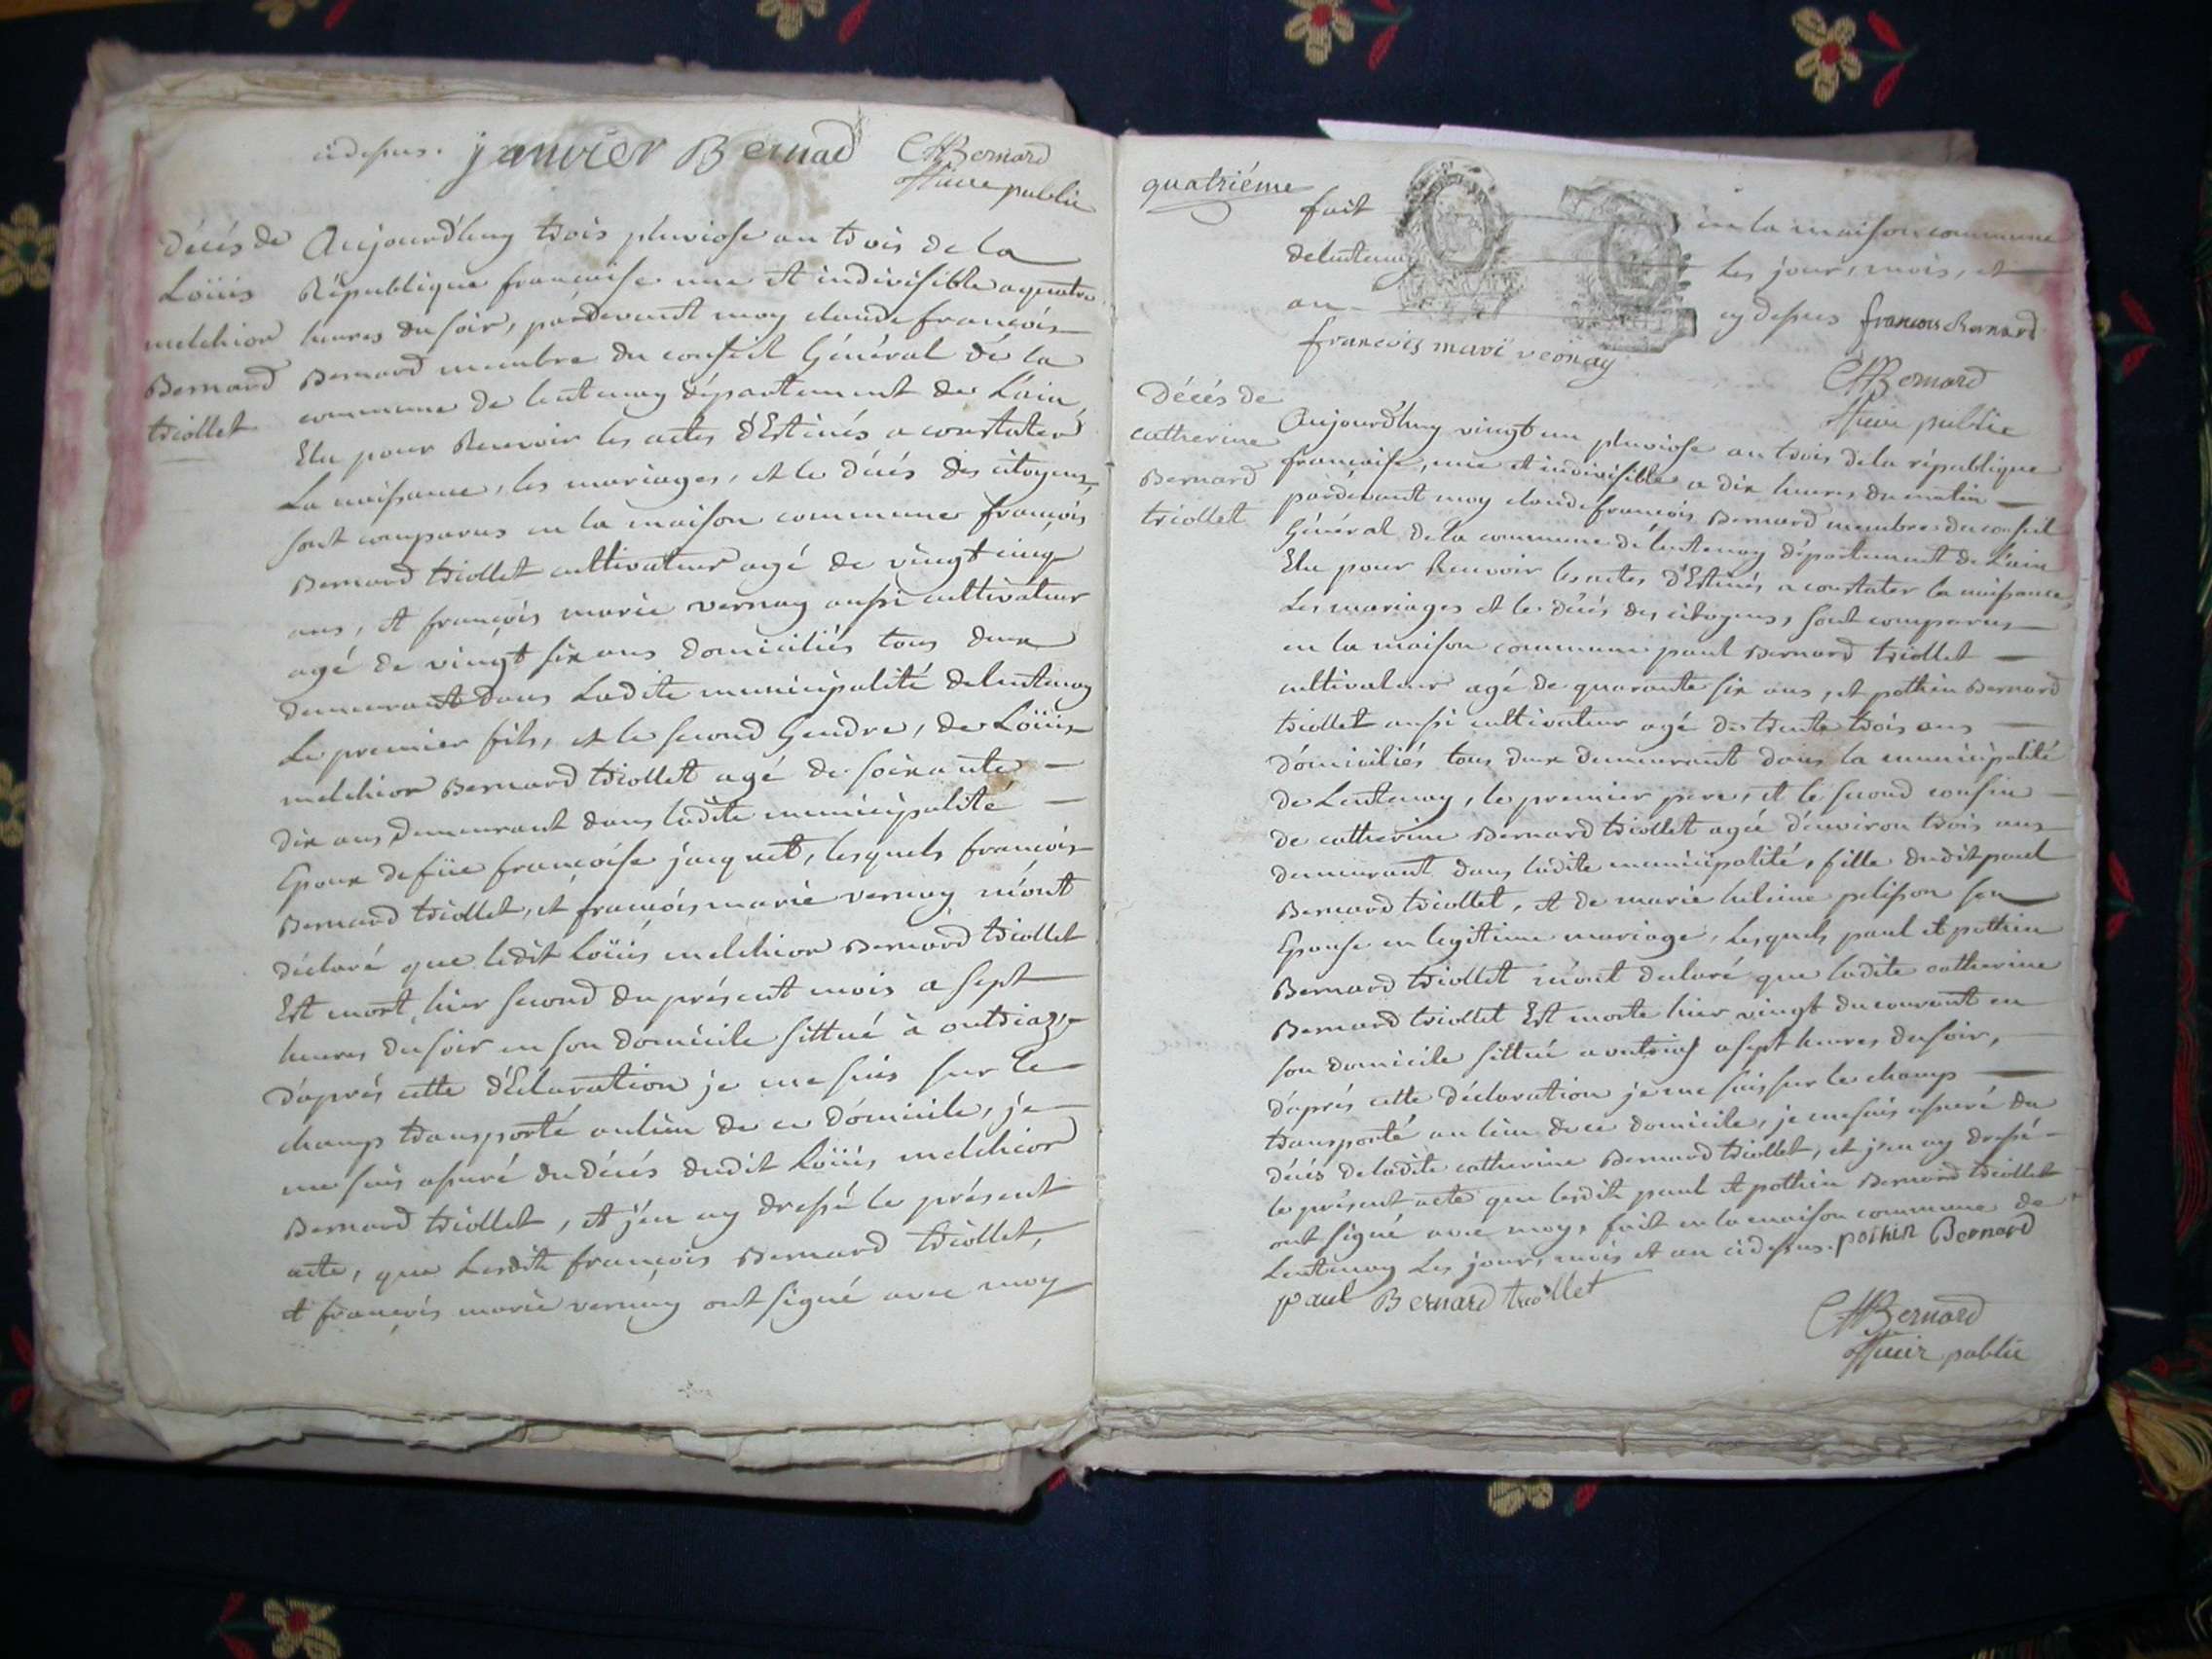 cidessus. janvier Bernad CfBernard
officier public
Décés de
Loüis
melchior
Bernard
triollet
Aujourd'huy trois pluviose an trois de la
République francaise une et indivisible a quatre
heures du soir, pardevant moy claude francois
Bernard membre du conseil Général de la
commune de lentenay département de L'ain
Elu pour Recevoir les actes d'Estinés a constater
La naissance, les mariages, et le décés des citoyens,
sont comparus en la maison commune francois
Bernard triollet cultivateur agé de vingt cinq
ans, et francois marie vernay aussi cultivateur
agé de vingt six ans domiciliés tous deux
demeurant dans Ladite municipalité de lentenay
Le premier fils, et le second Gendre, de Loüis
melchior Bernard triollet agé de soixante
dix ans, demeurant dans ladite municipalité
Epoux de füe francoise jacquet, lesquels francois
Bernard triollet, et francois marie vernay m'ont
déclaré que ledit Loüis melchior Bernard triollet
Est mort hier second du présent mois a sept
heures du soir en son domicile sittué à outriaz,
d'aprés cette d'Eclaration je me suis sur le
champ transporté au lieu de ce domicile, je
me suis assuré du décés dudit Loüis melchior
Bernard triollet, et j'en ay dressé le présent
acte, que Lesdits francois Bernard triollet,
et francois marie vernay ont signé avec moy
quatriéme
fait en la maison commune
de lentenay les jour, mois, et
an cy dessus francois Bernard
francois mari vernay
CfBernard
officier public
Décés de
catherine
Bernard
triollet
Aujourd'huy vingt un pluviose an trois de la république
francaise, une et indivisible a dix heures du matin
pardevant moy claude francois Bernard membre du conseil
Général de la commune de lentenay département de L'ain
Elu pour Recevoir les actes d'Estinés a constater la naissance,
Les mariages et le décés des citoyens, sont comparus
en la maison commune paul Bernard triollet
cultivateur agé de quarante six ans, et pothin Bernard
triollet aussi cultivateur agé de trente trois ans
domiciliés tous deux demeurant dans la municipalité
de Lentenay, le premier pere, et le second cousin
de catherine Bernard triollet agée d'environ trois ans
demeurant dans ladite municipalité, fille dudit paul
Bernard triollet, et de marie heleine pelisson son
Epouse en legitime mariage, Lesquels paul et pothin
Bernard triollet m'ont declaré que ladite catherine
Bernard triollet Est morte hier vingt du courant en
son domicile sittué a outrias a sept heures du soir,
d'aprés cette déclaration je me suis sur le champ
transporté au lieu de ce domicile, je me suis assuré du
décés de ladite catherine Bernard triollet, et j'en ay dressé
le présent acte que lesdits paul et pothin Bernard triollet
ont signé avec moy, fait en la maison commune de
Lentenay Les jour, mois et an cidessus. pothin Bernard
paul Bernard triollet
CfBernard
officier public